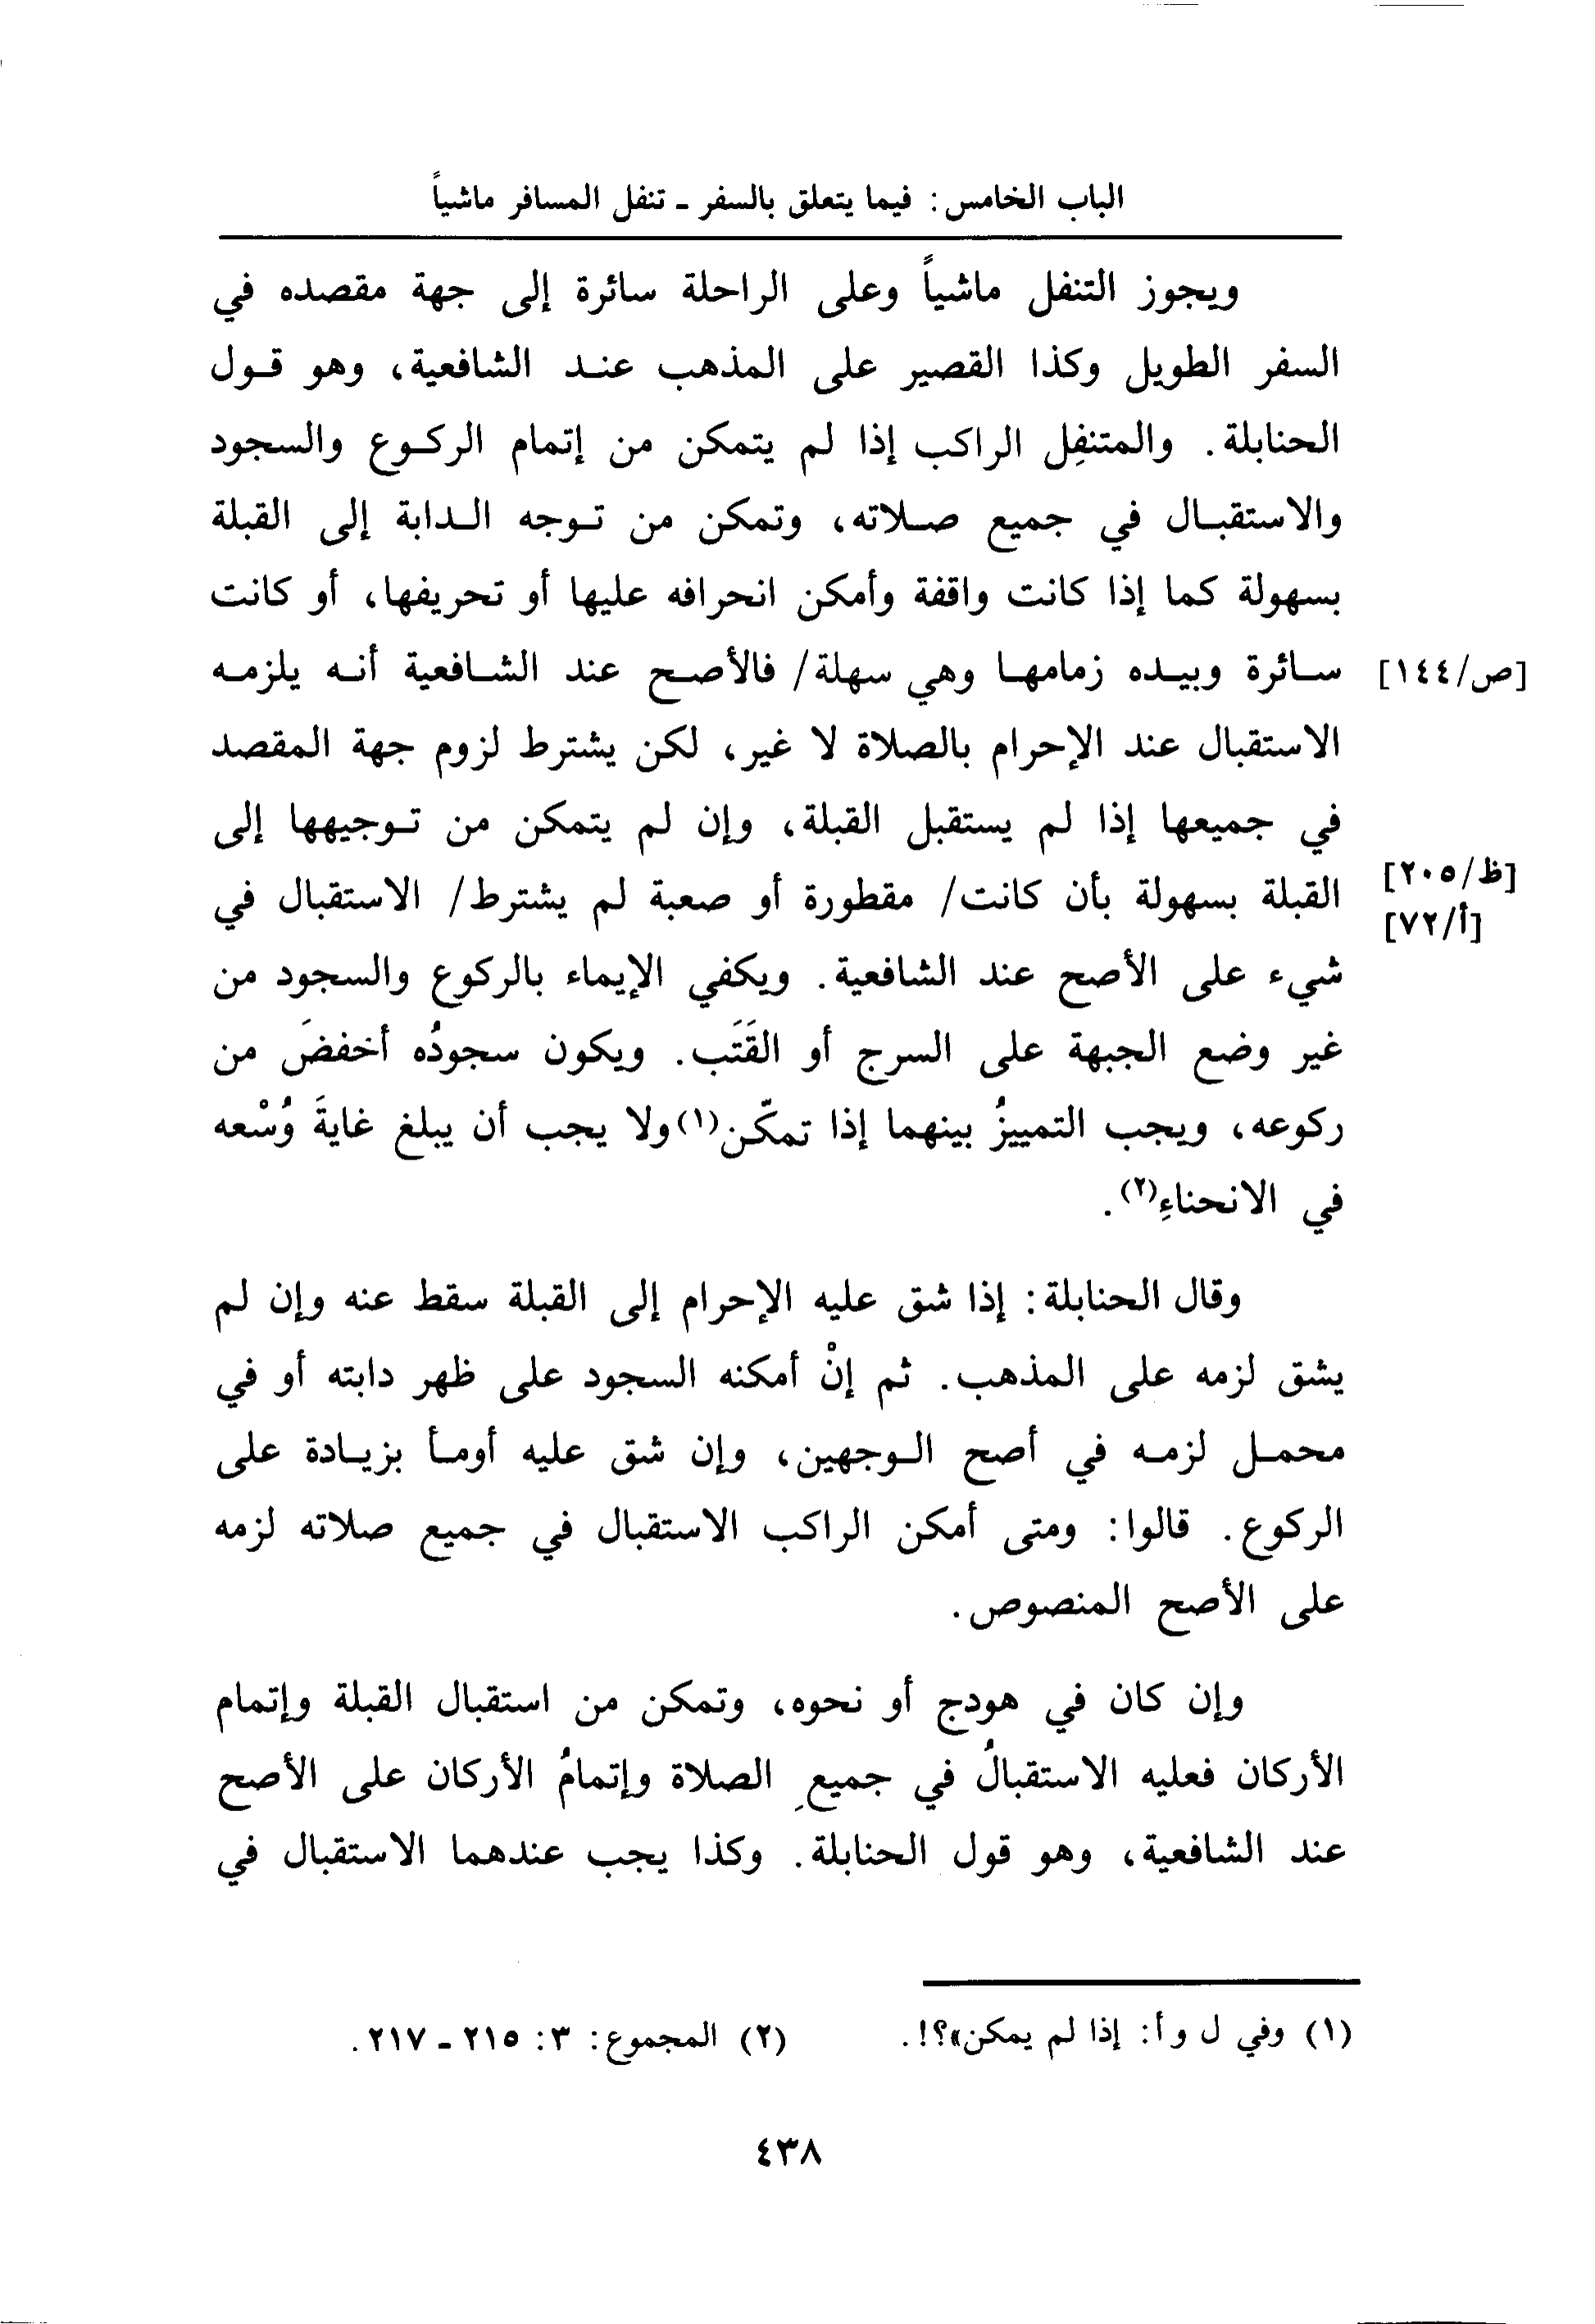 الباب الخامس: فيما يتعلق بالسفر - تنفل المسافر ماشياً
ويجوز التنفل ماشياً وعلى الراحلة سائرة إلى جهة مقصده في
السفر الطويل وكذا القصير على المذهب عند الشافعية، وهو قول
الحنابلة. والمتنفِل الراكب إذا لم يتمكن من إتمام الركوع والسجود
والاستقبال في جميع صلاته، وتمكن من توجه الدابة إلى القبلة
بسهولة كما إذا كانت واقفة وأمكن انحرافه عليها أو تحريفها، أو كانت
[ص/١٤٤] سائرة وبيده زمامها وهي سهلة/ فالأصح عند الشافعية أنه يلزمه
الاستقبال عند الإحرام بالصلاة لا غير، لكن يشترط لزوم جهة المقصد
في جميعها إذا لم يستقبل القبلة، وإن لم يتمكن من توجيهها إلى
[ظ/٢٠٥]
[أ/٧٢] القبلة بسهولة بأن كانت/ مقطورة أو صعبة لم يشترط/ الاستقبال في
شيء على الأصح عند الشافعية. ويكفي الإيماء بالركوع والسجود من
غير وضع الجبهة على السرج أو القَتَب. ويكون سجودُه أخفضَ من
ركوعه، ويجب التمييزُ بينهما إذا تمكّن(١) ولا يجب أن يبلغ غايةَ وُسْعه
في الانحناءِ(٢).
وقال الحنابلة: إذا شق عليه الإحرام إلى القبلة سقط عنه وإن لم
يشق لزمه على المذهب. ثم إنْ أمكنه السجود على ظهر دابته أو في
محمل لزمه في أصح الوجهين، وإن شق عليه أومأ بزيادة على
الركوع. قالوا: ومتى أمكن الراكب الاستقبال في جميع صلاته لزمه
على الأصح المنصوص.
وإن كان في هودج أو نحوه، وتمكن من استقبال القبلة وإتمام
الأركان فعليه الاستقبالُ في جميعِ الصلاة وإتمامُ الأركان على الأصح
عند الشافعية، وهو قول الحنابلة. وكذا يجب عندهما الاستقبال في
(١) وفي ل و أ: إذا لم يمكن»؟!. (٢) المجموع: ٣: ٢١٥ - ٢١٧.
٤٣٨